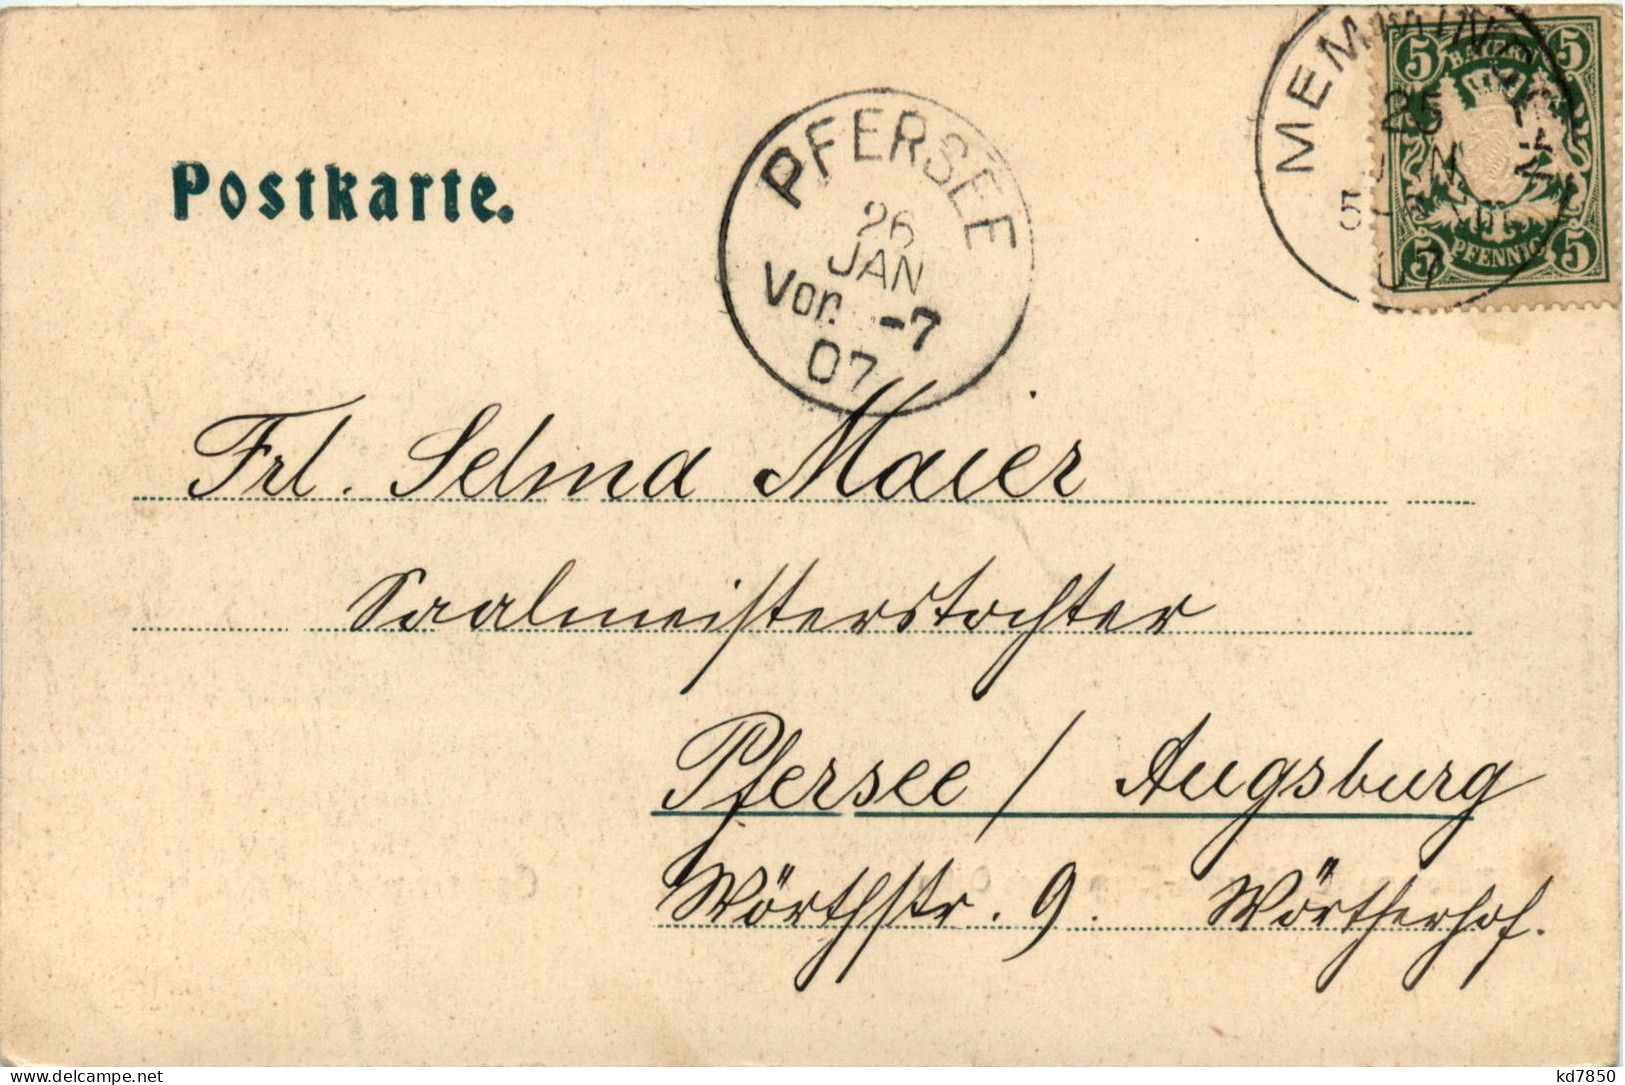 Postkarte.
PFERSEE
26
JAN
Vor. -7
07
MEMMINGEN
25
JAN
07
BAYERN
5 5
5 5
PFENNIG
Frl. Selma Maier
Saalmeisterstochter
Pfersee / Augsburg
Wörthstr. 9. Wörtherhof.
delcampe.net
kd7850